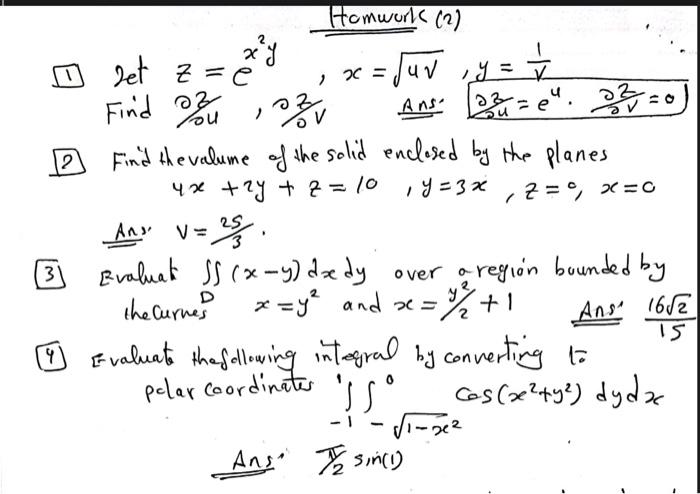 Homwork (2)
1 Let z = e^{x²y} , x = √uv , y = 1/v
Find ∂z/∂u , ∂z/∂v Ans: ∂z/∂u = e^u . ∂z/∂v = 0
2 Find the valume of the solid enclosed by the planes
4x + 2y + z = 10 , y = 3x , z = 0, x = 0
Ans: V = 25/3 .
3 Evaluat ∬_D (x-y) dx dy over a region bounded by
the curves x = y² and x = y²/2 + 1 Ans: 16√2/15
4 Evaluate the following integral by converting to
polar coordinates ∫_{-1}^{1} ∫_{-√1-x²}^{0} cos(x²+y²) dy dx
Ans: π/2 sin(1)